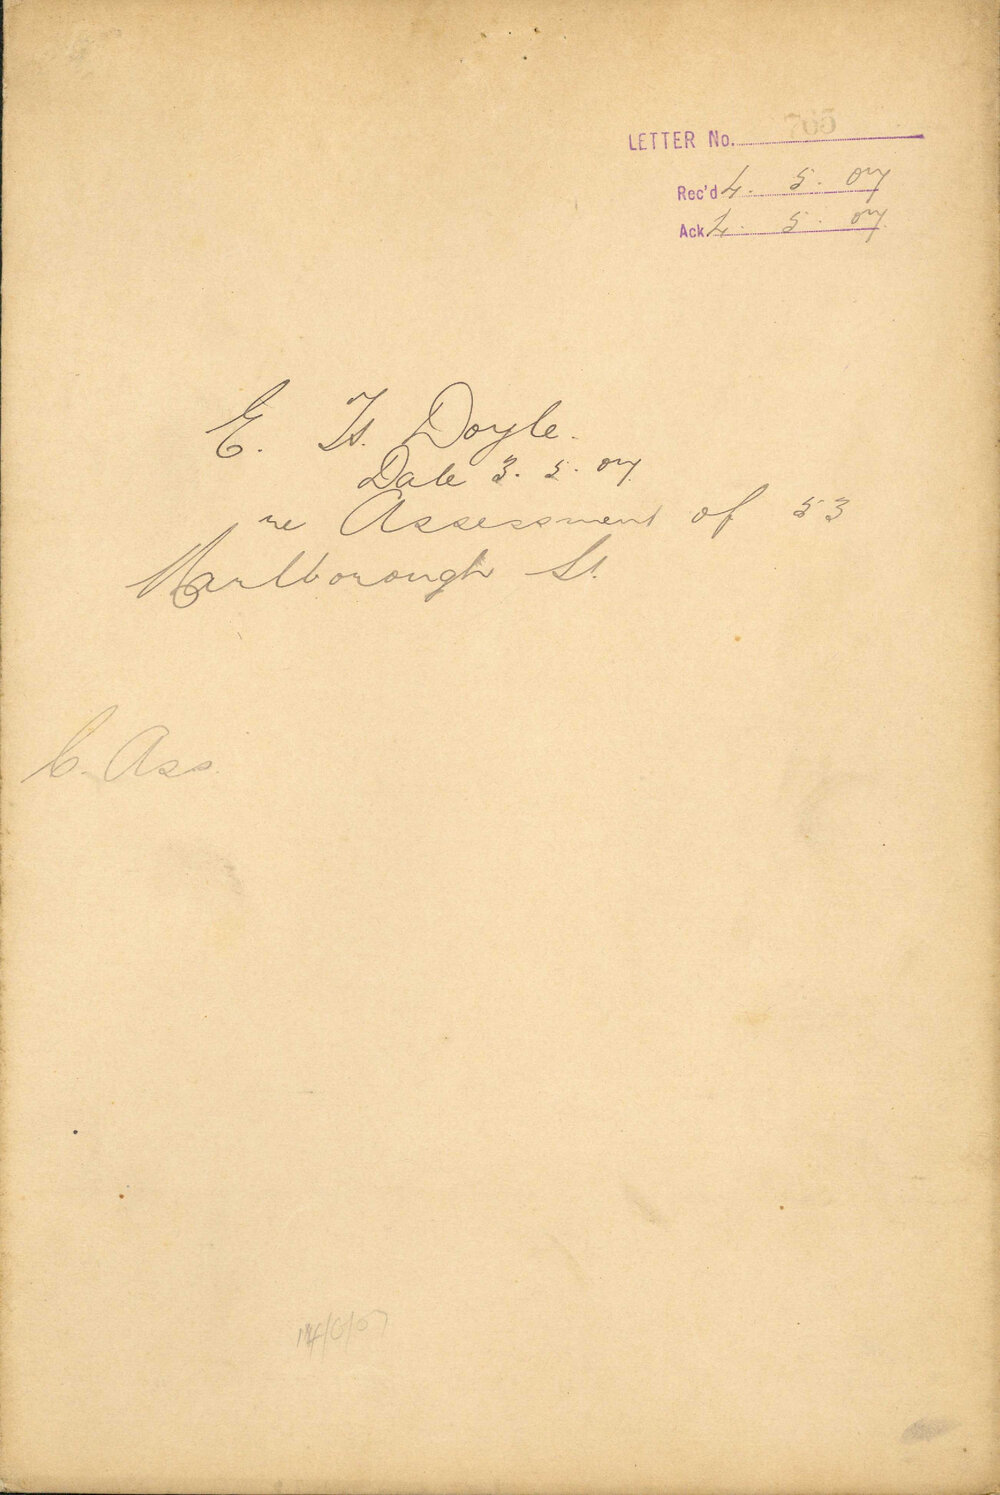 LETTER No. 765
Rec'd 4. 5. 07
Ack. 4. 5. 07
E. H. Doyle.
Date 3. 5. 07
re Assessment of 53
Marlborough St.
C. Ass.
14/6/07